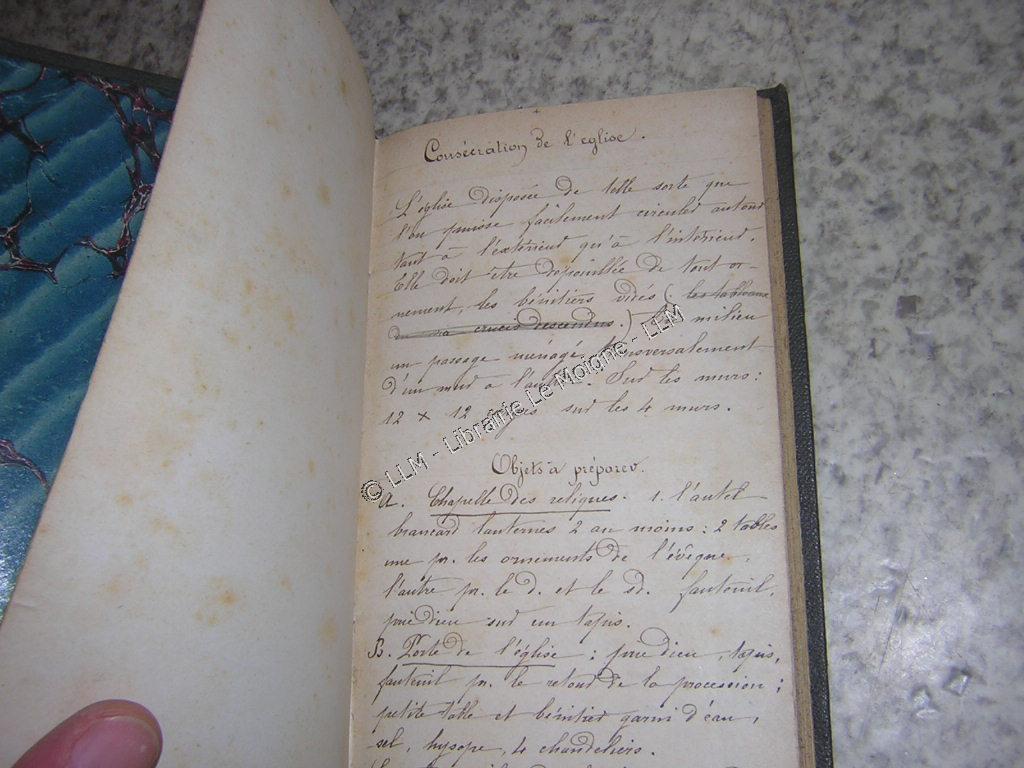 Consécration de l'eglise.
L'église disposée de telle sorte que
l'on puisse facilement circuler autour
tant à l'extérieur qu'à l'intérieur.
Elle doit être dépouillée de tout or-
nement, les bénitiers vidés (les tableaux
du via crucis descendus.) milieu
un passage ménagé transversalement
d'un mur à l'autre. Sur les murs:
12 + 12 sur les 4 murs.
Objets à préparer.
A. Chapelle des reliques. 1. l'autel
brancard lanternes 2 au moins: 2 tables
une pr. les ornements de l'évêque,
l'autre pr. le d. et le sd. fauteuil,
prie dieu sur un tapis.
B. Porte de l'église: prie dieu, tapis,
fauteuil pr. le retour de la procession;
petite table et bénitier garni d'eau,
sel, hysope, 4 chandeliers.
© LLM - Librairie Le Moigne - LLM